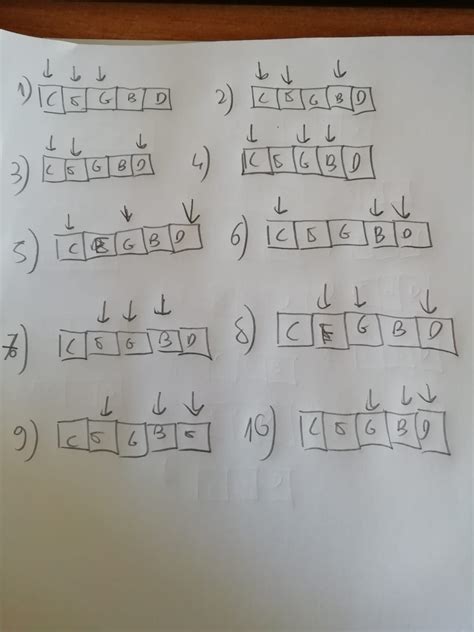 1) C E G B D 2) C E G B D
3) C E G B D 4) C E G B D
5) C E G B D 6) C E G B D
7) C E G B D 8) C E G B D
9) C E G B 10) C E G B D